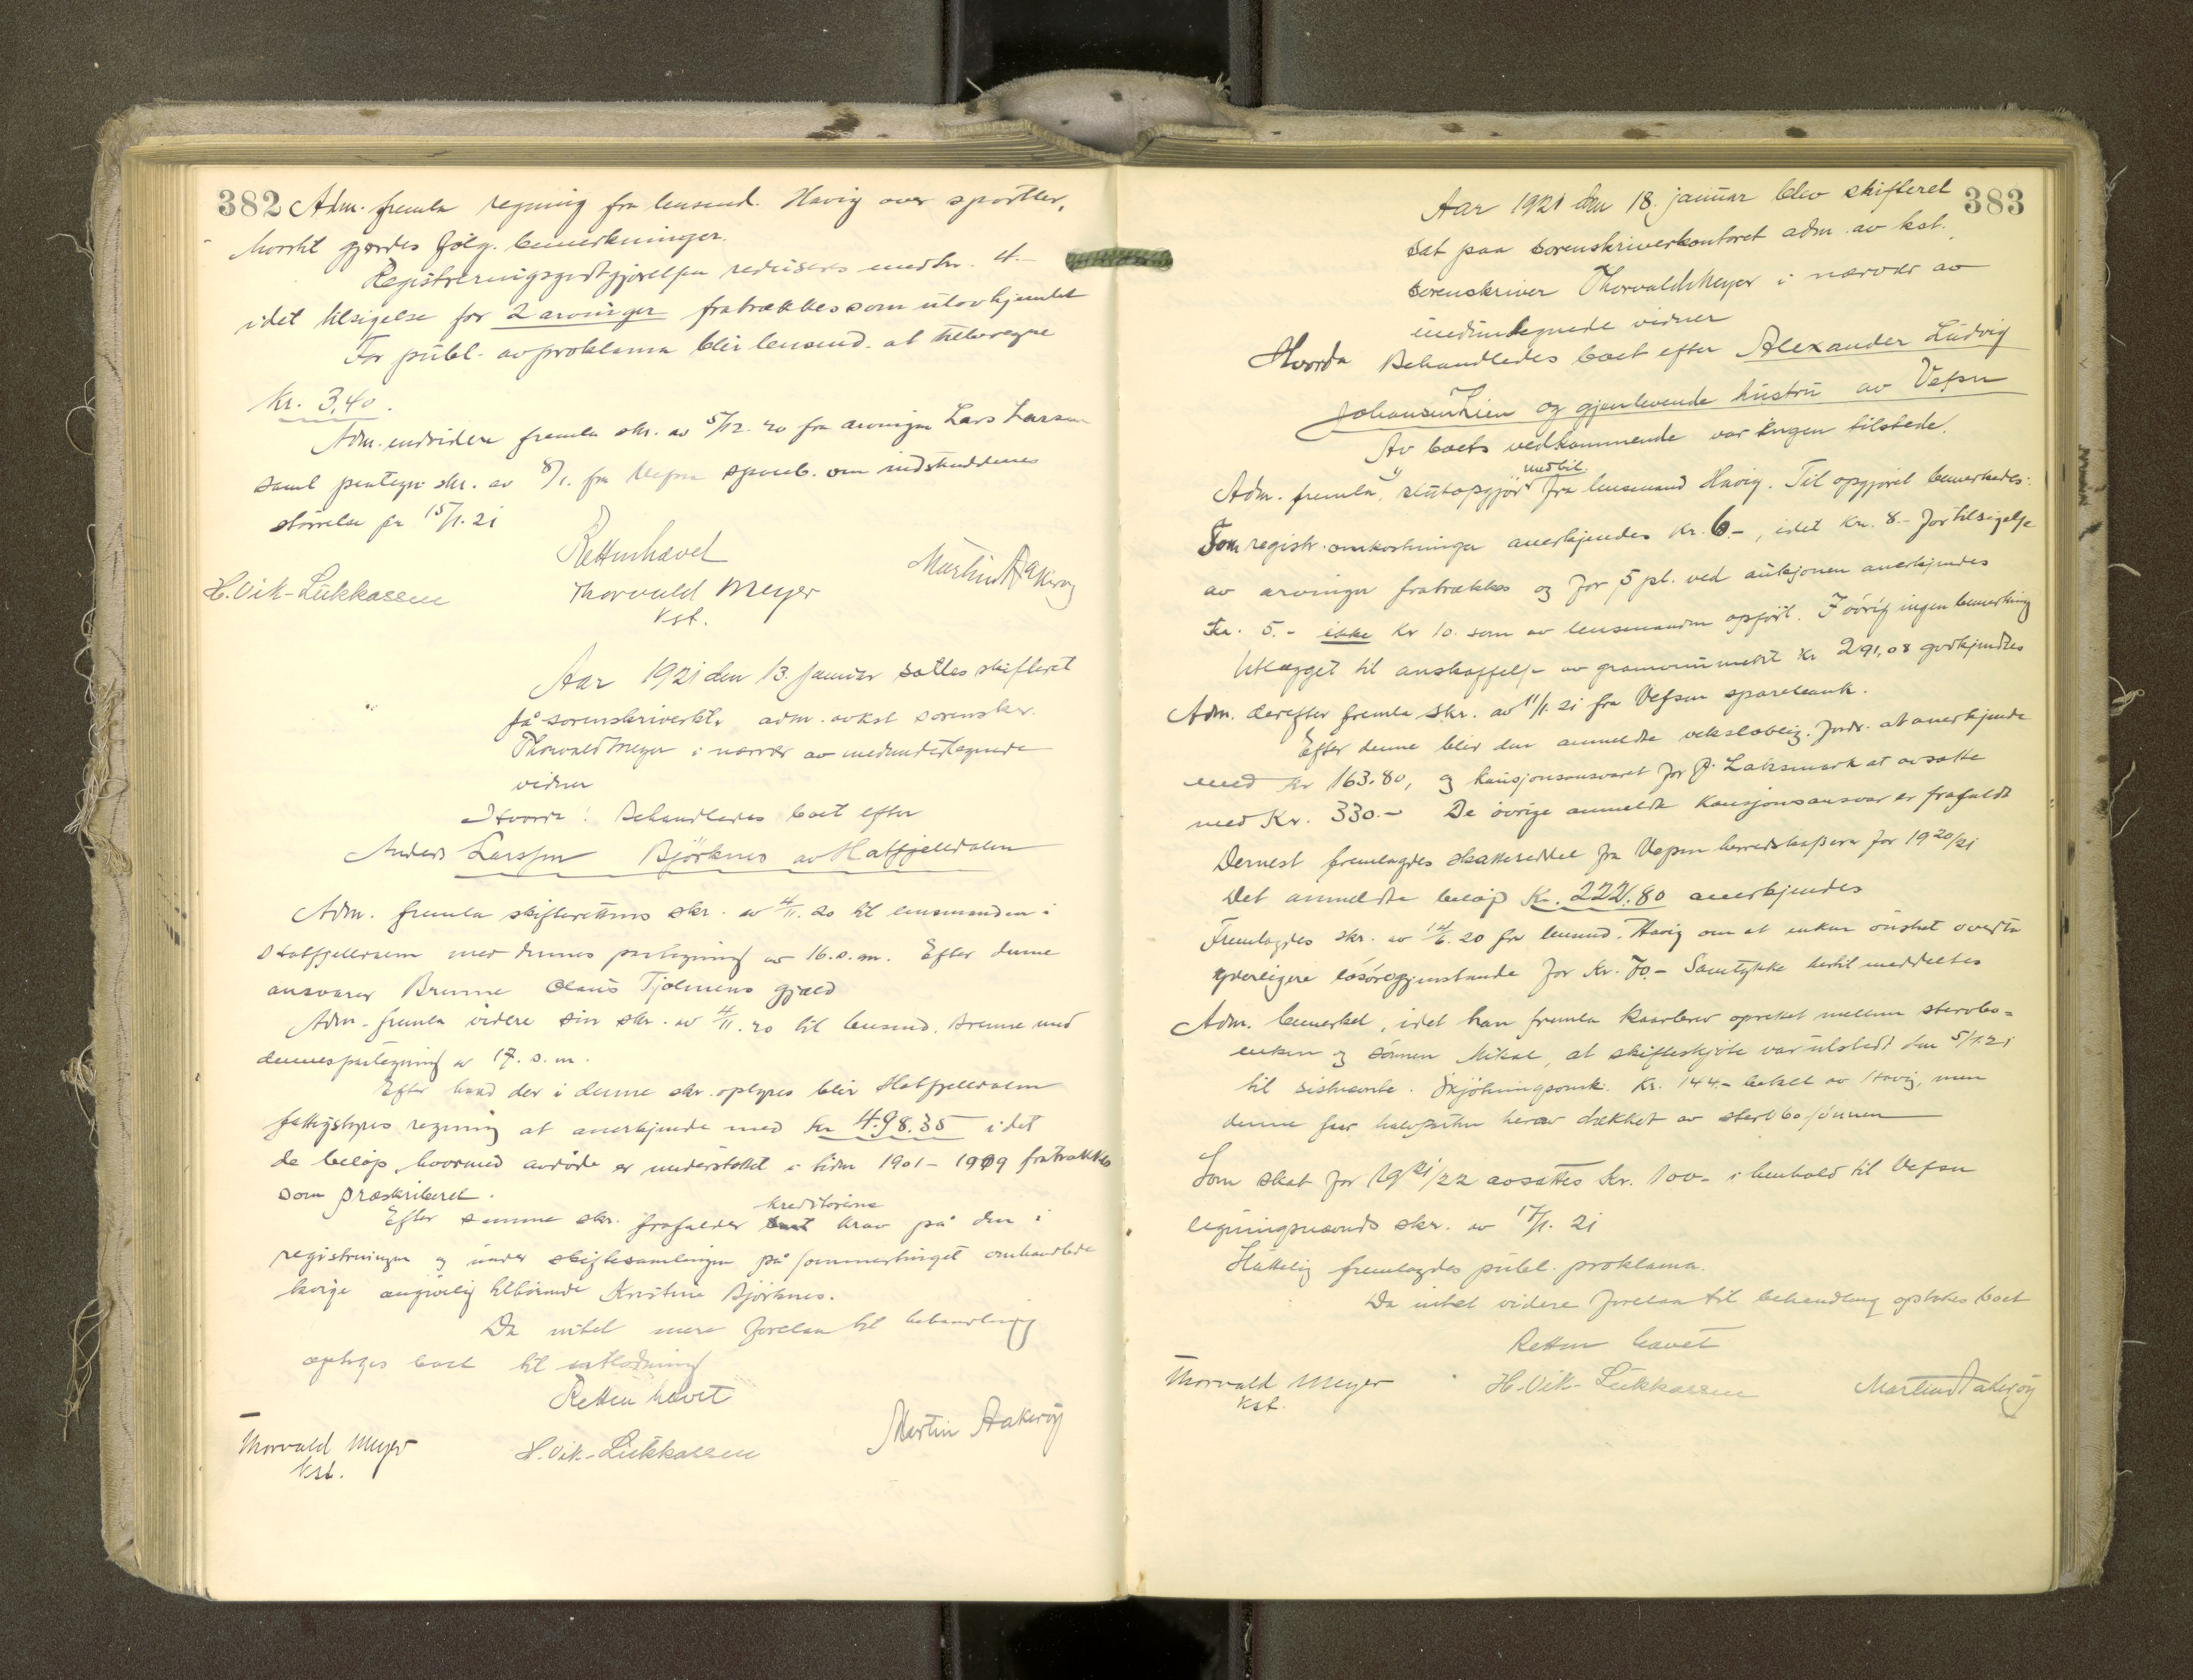 382 Adm. fremla regning fra lensmd. Havig over sportler,
hvortil gjordes følg. bemerkninger.
Registreringsgodtgjørelsen reduseres med kr. 4.-
idet tilsigelse for 2 arvinger fratrækkes som utovhjemlet
For publ. av proklama blir lensmd. at tilberegne
Kr. 3,40.
Adm. endvidere fremla skr. av 5/12. 20 fra arvingen Lars Larsen
samt paategn. skr. av 8/1. fra Vefsn spareb. om indskuddenes
størrelse pr 15/1. 21
Retten hævet
H. Vik-Lukkassen Thorvald Meyer Martin Aakerøy
kst.
Aar 1921 den 13. januar sattes skifteret
på sorenskriverkt. adm. av kst sorenskr.
Thorvald Meyer i nærvær av medundertegnede
vidner
Hvorda: Behandledes boet efter
Anders Larssen Björknes av Hatfjelldalen
Adm. fremla skifterettens skr. av 4/11. 20 til lensmanden i
Hatfjelldalen med dennes paategning av 16. s. m. Efter denne
ansvarer Brenne Olaus Tjolmens gjæld
Adm. fremla videre sin skr. av 4/11. 20 til lensmd. Brenne med
dennes paategning av 17. s. m.
Efter hvad der i denne skr. oplyses blir Hatfjelldalen
fattigstyres regning at anerkjende med Kr 498.35 idet
de beløp, hvormed avdøde er understøttet i tiden 1901 - 1909 fratrækkes
som præskriberet.
kreditorerne
Efter samme skr. frafalder krav på den i
registreringen og under skiftesamlingen på sommertinget omhandlede
kvige angivelig tilhørende Kristine Björknes.
Da intet mere forelaa til behandling
optoges boet til utlodning
Retten hævet
Thorvald Meyer H. Vik-Lukkassen Martin Aakerøy
kst.
383
Aar 1921 den 18. januar blev skifteret
sat paa sorenskriverkontoret adm. av kst.
sorenskriver Thorvald Meyer i nærvær av
medundertegnede vidner
Hvorda Behandledes boet efter Alexander Ludvig
Johansen Lien og gjenlevende hustru av Vefsn
Av boets vedkommende var ingen tilstede.
med bil.
Adm. fremla slutopgjør fra lensmand Havig. Til opgjøret bemerkedes:
Som registr. omkostninger anerkjendes Kr. 6.-, idet Kr. 8.- for tilsigelse
av arvinger fratrækkes og for 5 pl. ved auksjonen anerkjendes
Kr. 5.- ikke Kr 10. som av lensmanden opført. I øvrig ingen bemerkning
Utlægget til anskaffelse av gravmonumentet Kr 291,08 godkjendtes
Adm. derefter fremla skr. av 11/1. 21 fra Vefsn sparebank.
Efter denne blir den anmeldte vekslobelig. fordr. at anerkjende
med Kr 163.80, og kausjonsansvaret for P. Laksmark at avsatte
med Kr. 330.- De øvrige anmeldte kausjonsansvar er frafaldt
Dernest fremlagdes skatteseddel fra Vefsn herredskasserer for 1920/21
Det anmeldte beløp Kr. 222.80 anerkjendes
Fremlagdes skr. av 14/6. 20 fra lensmd. Havig om at enken ønsket overta
yderligere løsøregjenstande for Kr. 70.- Samtykke hertil meddeltes
Adm. bemerket, idet han fremla kaarbrev oprettet mellem stervbo-
enken og sønnen Mikal, at skifteskjøte var utstedt den 5/1. 21
til sistnævnte. Skjøtningsomk. Kr. 144.- betalt av Havig, men
denne faar halvparten herav dækket av stervbosønnen
Som skat for 1921/22 avsattes Kr. 100- i henhold til Vefsn
ligningsnævnds skr. av 17/1. 21
Endelig fremlagdes publ. proklama.
Da intet videre forelaa til behandling optokes boet
Retten hævet
Thorvald Meyer H. Vik-Lukkassen Martin Aakerøy
kst.